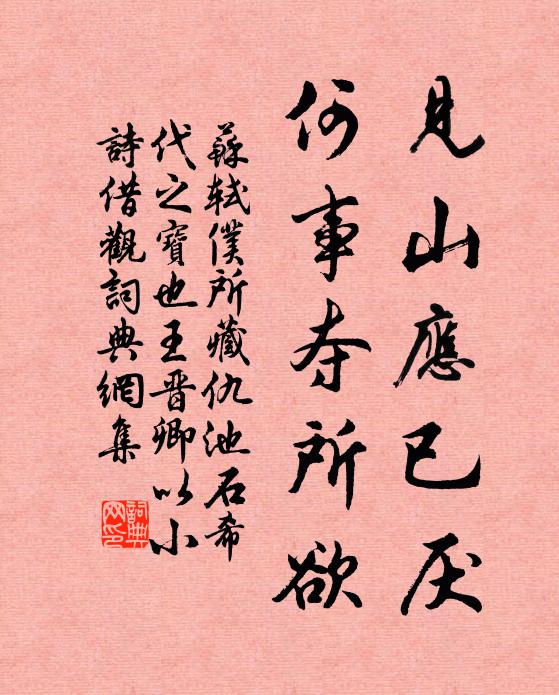 見山應已厌
何事夺所欲
蘇轼僕所藏仇池石希
代之寶也王晋卿以小
詩借觀詞典網集
詞典
网印